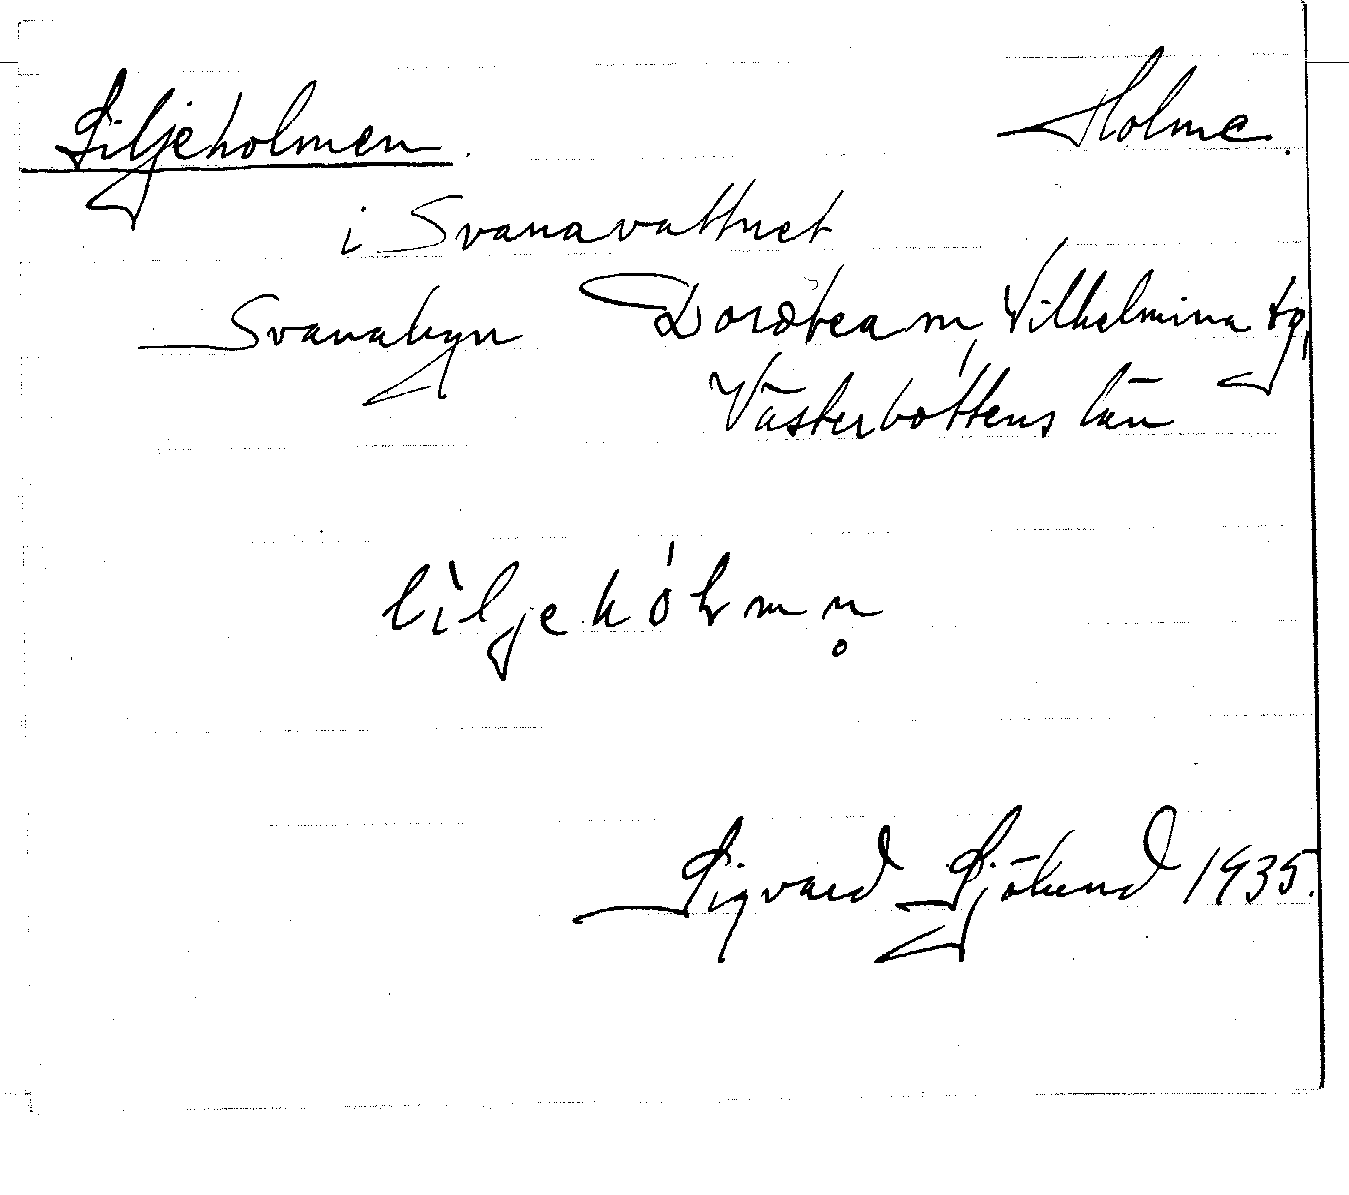 Liljeholmen. Holme.
i Svanavattnet
Svanabyn Dorotea sn, Vilhelmina tg,
Västerbottens län
lìljehólmn̥
Sigvard Sjölund 1935.